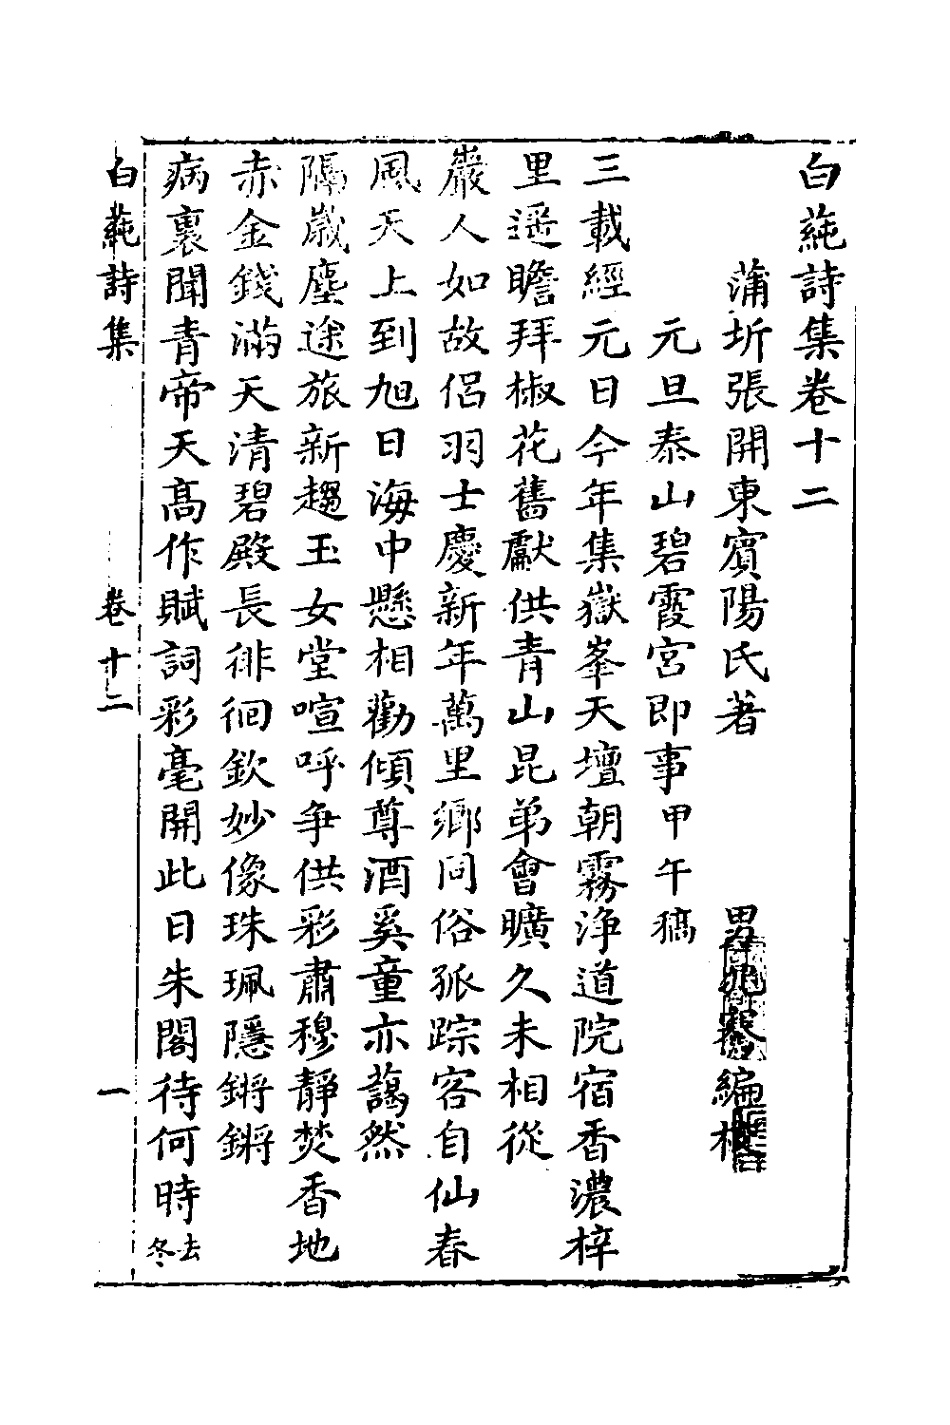 白蒓詩集卷十二
蒲圻張開東賓陽氏著 男兆騫編校
元旦泰山碧霞宮即事甲午稿
三載經元日今年集嶽峯天壇朝霧浄道院宿香濃梓
里遥瞻拜椒花舊獻供青山昆弟會曠久未相從
巖人如故侣羽士慶新年萬里鄉同俗孤踪客自仙春
風天上到旭日海中懸相勸傾尊酒奚童亦藹然
隔歲塵途旅新趨玉女堂喧呼争供彩肅穆靜焚香地
赤金錢滿天清碧殿長徘徊欽妙像珠珮隱鏘鏘
病裏聞青帝天高作賦詞彩毫開此日朱閣待何時去冬
白蒓詩集 卷十二 一